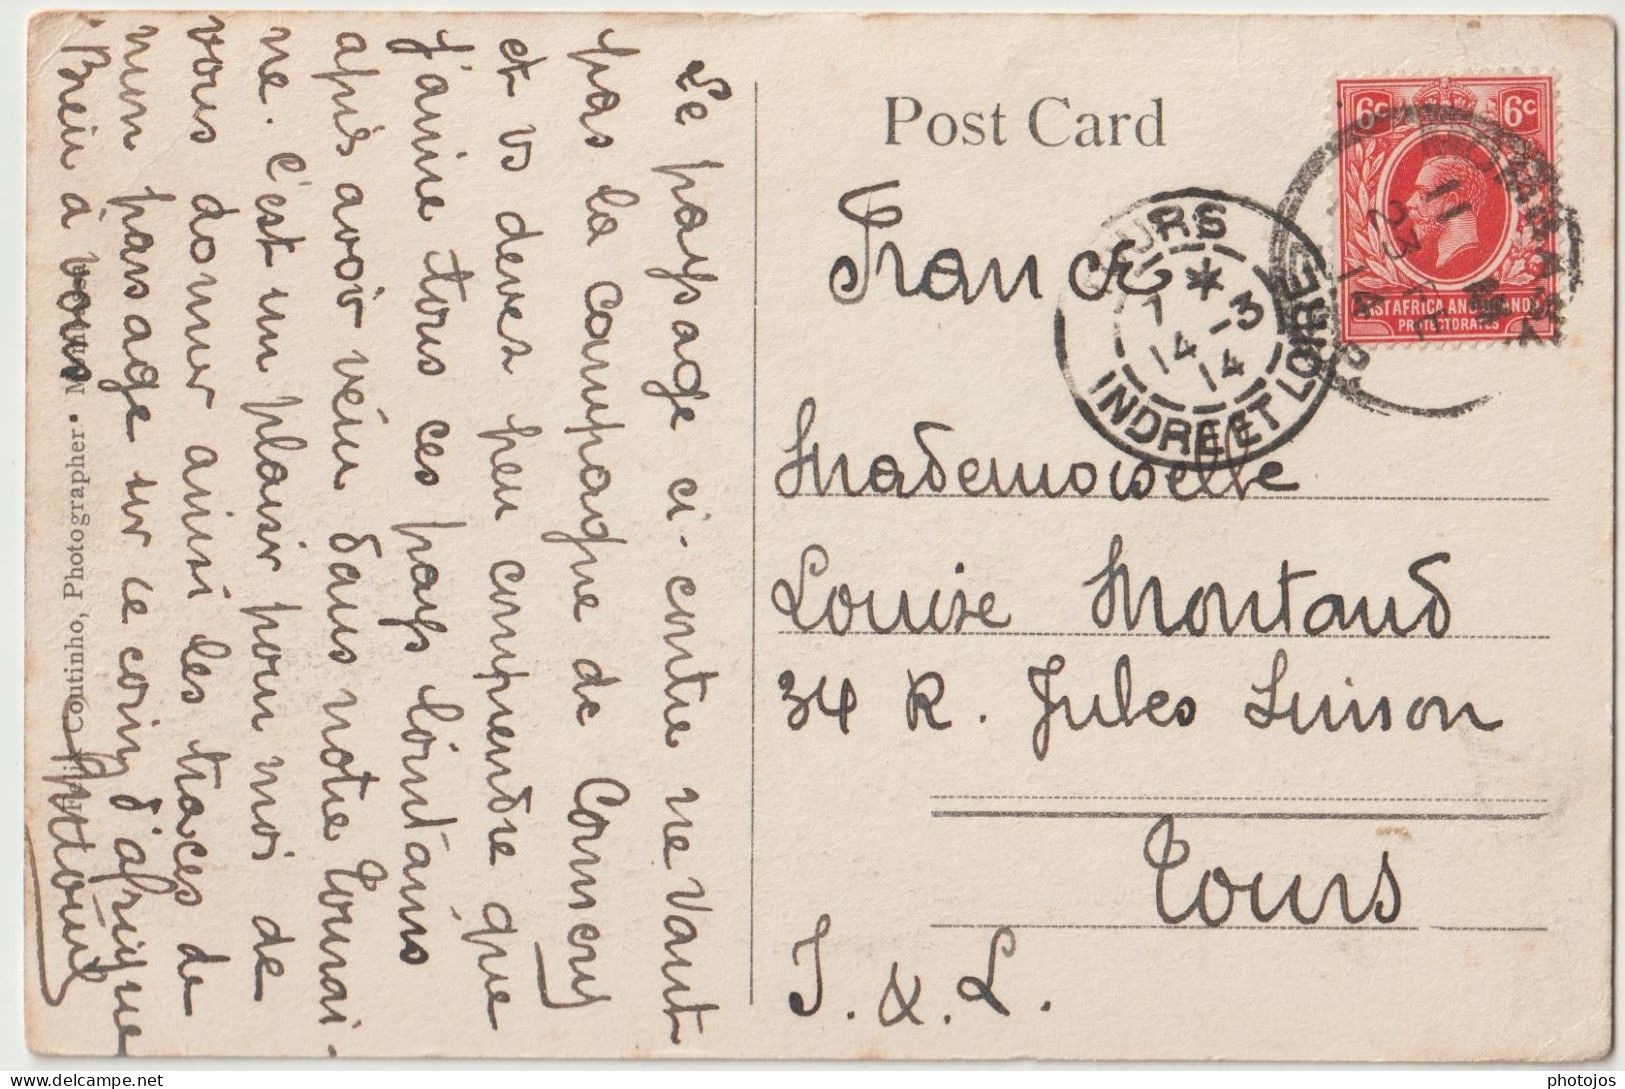 Le paysage ci-contre ne vaut
pas la campagne de Cormery
et vs devez peu comprendre que
j'aime tous ces pays lointains
après avoir vécu dans notre Tourai-
ne. C'est un plaisir pour moi de
vous donner ainsi les traces de
mon passage sur ce coin d'afrique
Bien à vous
Coutinho, Photographer.
Post Card
6c 6c
EAST AFRICA AND UGANDA
PROTECTORATES
11
23 FE
14
TOURS
INDRE ET LOIRE
1 * -3
14 14
France
Mademoiselle
Louise Montaud
34 R. Jules Simon
Tours
I. & L.
photojos